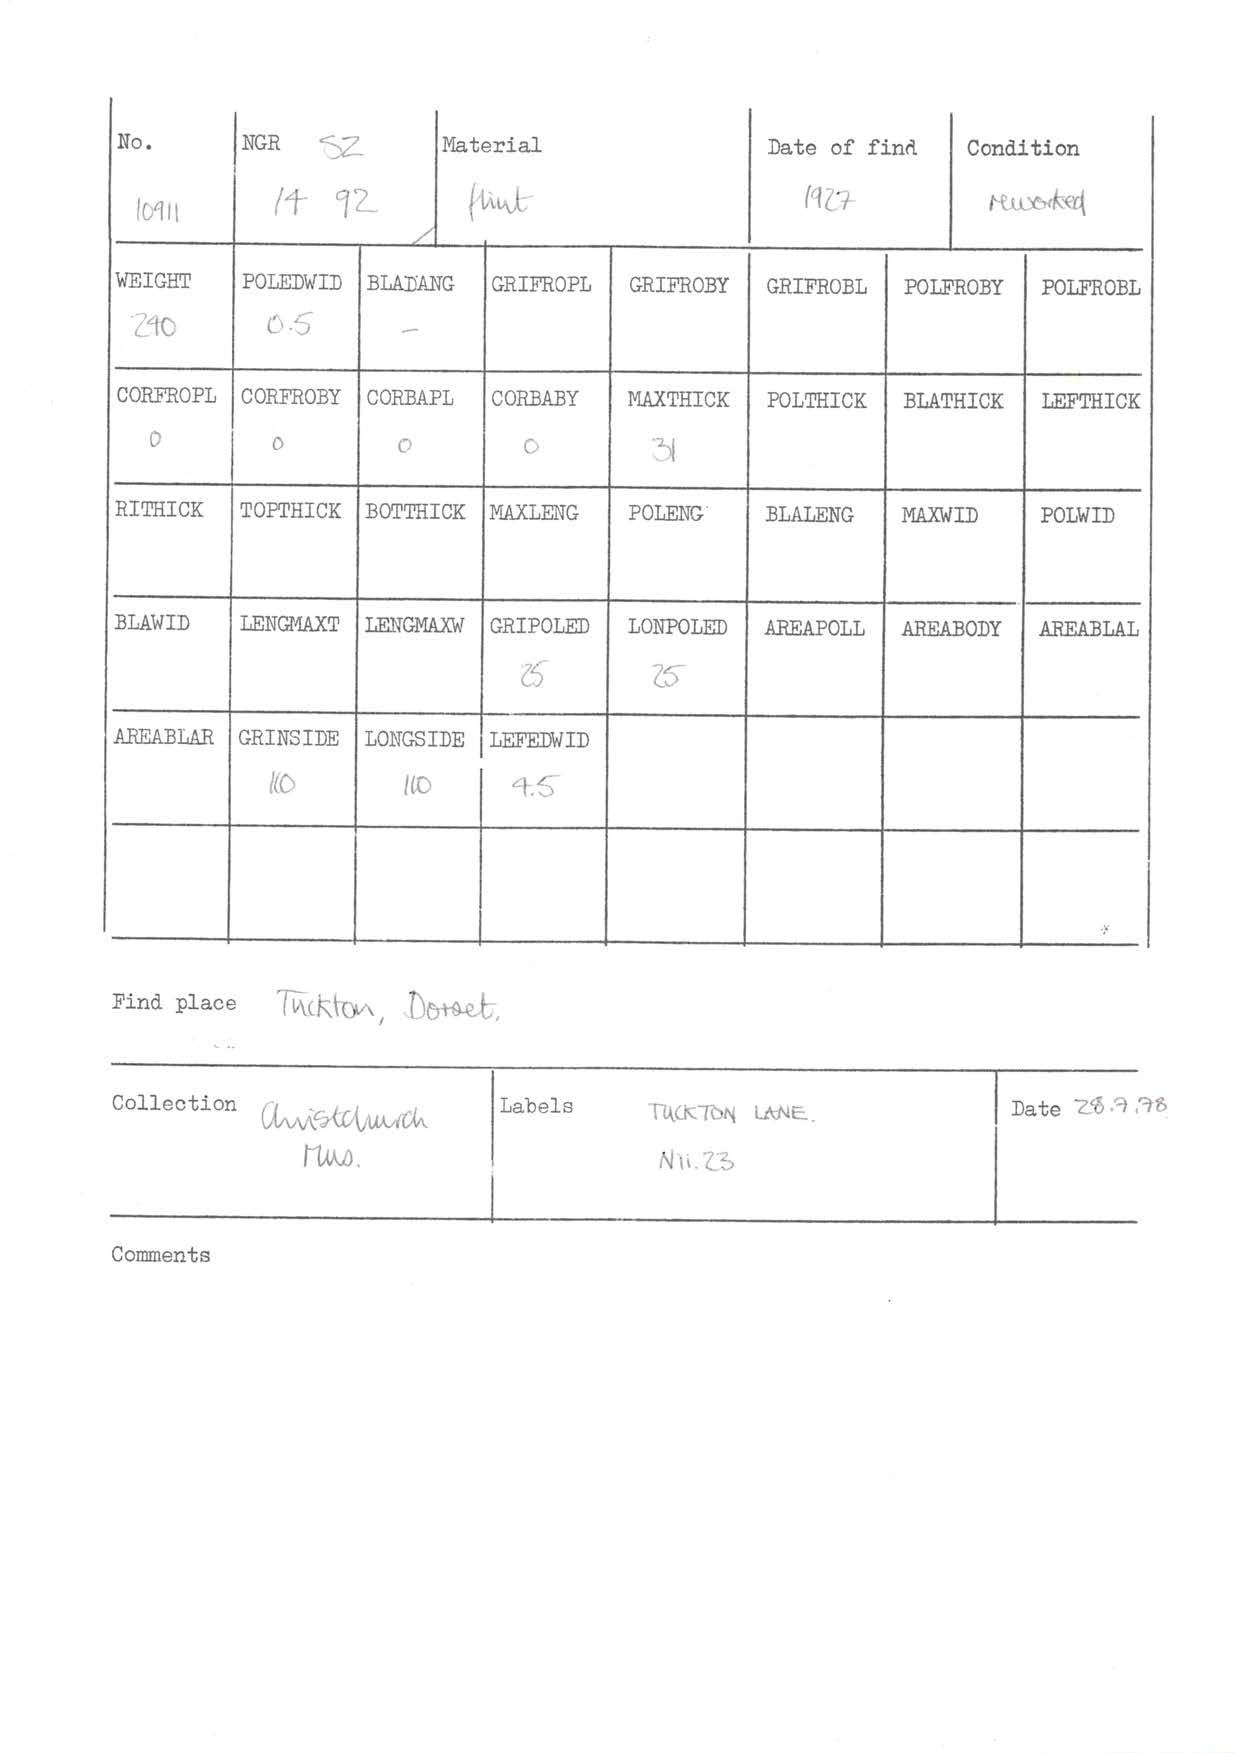 No. NGR SZ Material Date of find Condition
10911 14 92 flint 1927 reworked
WEIGHT POLEDWID BLADANG GRIFROPL GRIFROBY GRIFROBL POLFROBY POLFROBL
290 0.5 –
CORFROPL CORFROBY CORBAPL CORBABY MAXTHICK POLTHICK BLATHICK LEFTHICK
0 0 0 0 31
RITHICK TOPTHICK BOTTHICK MAXLENG POLENG BLALENG MAXWID POLWID
BLAWID LENGMAXT LENGMAXW GRIPOLED LONPOLED AREAPOLL AREABODY AREABLAL
25 25
AREABLAR GRINSIDE LONGSIDE LEFEDWID
110 110 4.5
Find place Tuckton, Dorset.
Collection Christchurch Mus.
Labels TUCKTON LANE.
N11.23
Date 28.7.78
Comments